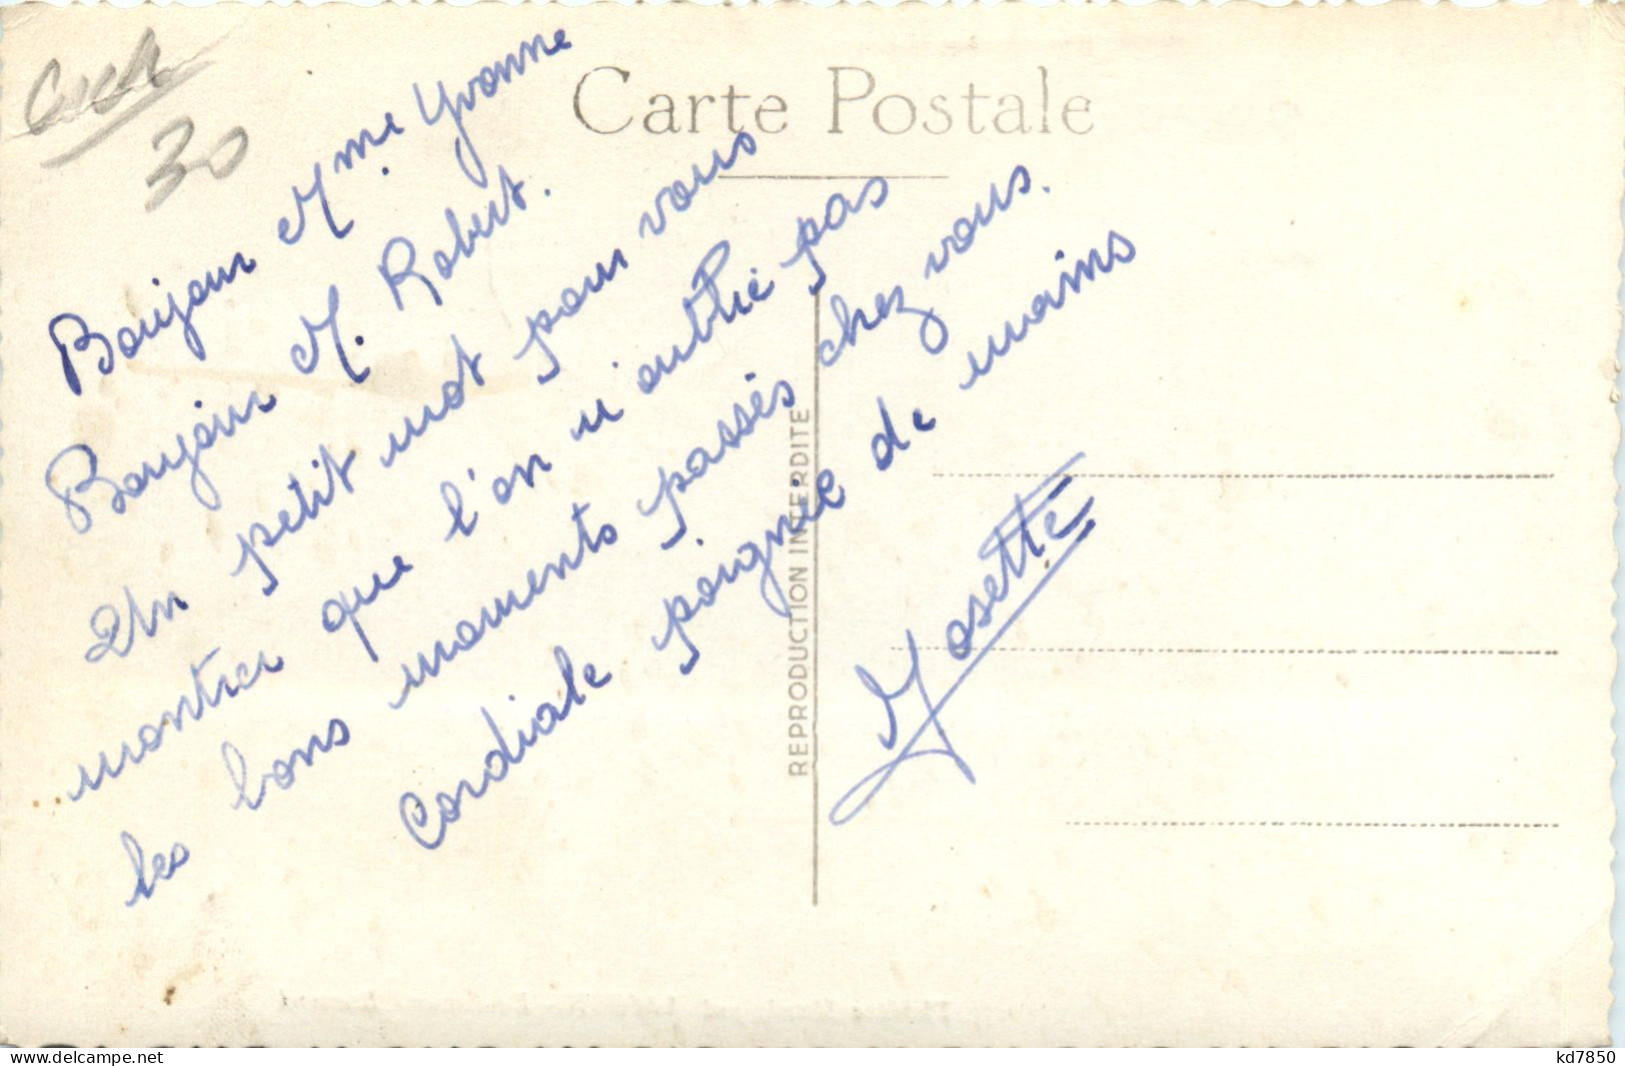 30
Carte Postale
Bonjour Mme Yvonne
Bonjour M. Robert.
Un petit mot pour vous
montrer que l'on n'oublie pas
les bons moments passés chez vous.
Cordiale poignée de mains
Josette
REPRODUCTION INTERDITE
www.delcampe.net
kd7850